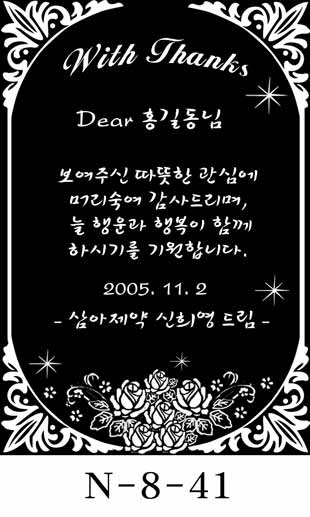 With Thanks
Dear 홍길동님
보여주신 따뜻한 관심에
머리숙여 감사드리며,
늘 행운과 행복이 함께
하시기를 기원합니다.
2005. 11. 2
- 삼아제약 신희영 드림 -
N-8-41